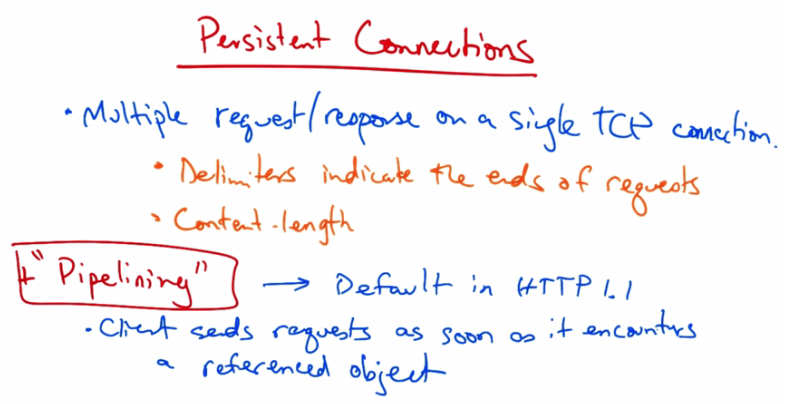 Persistent Connections
• Multiple request/response on a single TCP connection.
• Delimiters indicate the ends of requests
• Content-length
+ "Pipelining" → Default in HTTP 1.1
• Client sends requests as soon as it encounters
a referenced object